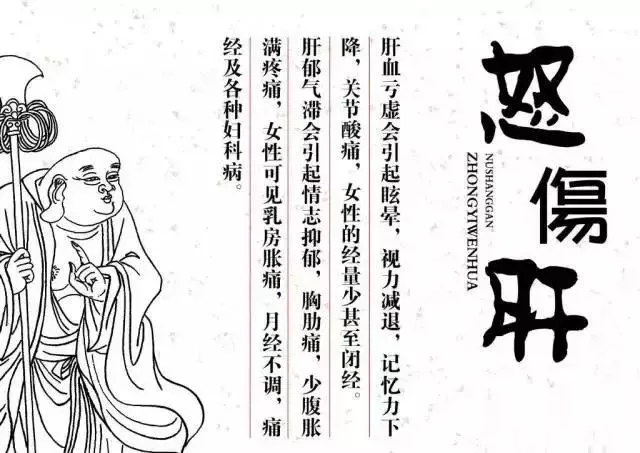 怒傷肝
NUSHANGGAN
ZHONGYIWENHUA
肝血亏虚会引起眩晕，视力减退，记忆力下
降，关节酸痛，女性的经量少甚至闭经。
肝郁气滞会引起情志抑郁，胸肋痛，少腹胀
满疼痛，女性可见乳房胀痛，月经不调，痛
经及各种妇科病。